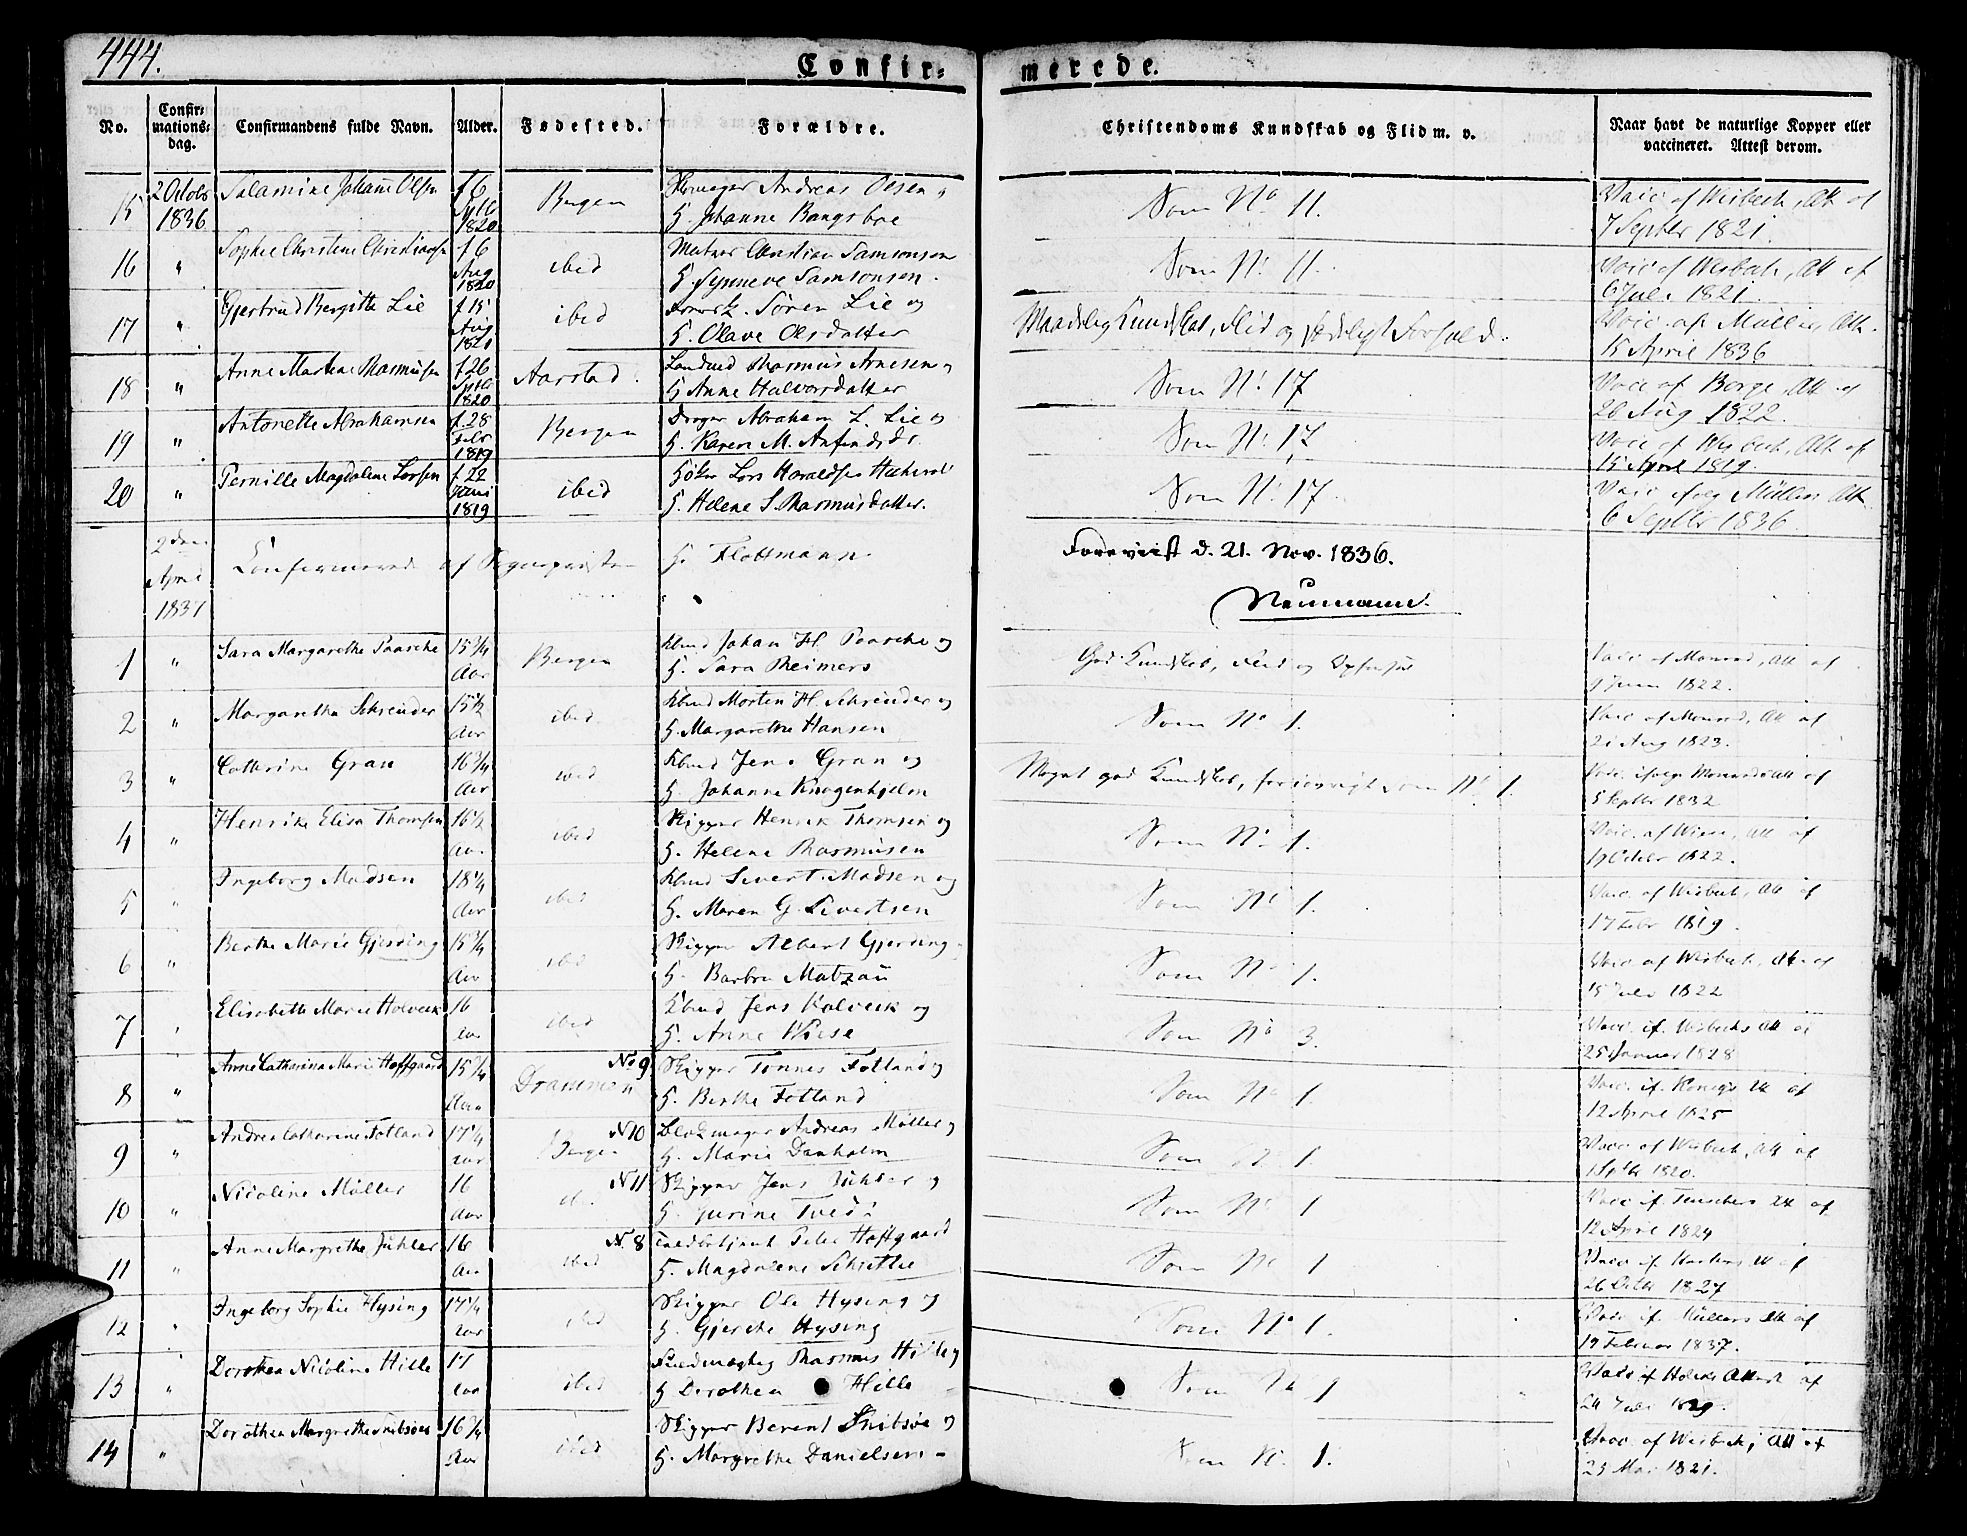 444.
Confir-
merede.
No.
Confirmations-dag.
Confirmandens fulde Navn.
Alder.
Fødested.
Forældre.
Christendoms Kundskab og Flid m. v.
Naar havt de naturlige Kopper eller
vaccineret. Attest derom.
15 2 Octobr 1836 Salamine Johanne Olsen f. 6 Septb 1820 Bergen Andreas Olsen og
H. Johanne Bangsboe
Som No 11.
Vacc. af Wisbech, Att. af
7 Septbr 1821.
16 " Sophie Christine Christiansen f. 6 Aug 1820 ibid Christian Samsonsen
H. Synneve Samsonsen.
Som N. 11.
Vacc. af Wisbech, Att. af
6 Juli 1821.
17 " Gjertrud Bergitte Lie f. 15 Aug 1820 ibid Søren Lie og
H. Olave Olsdatter
Maadelig Kundskab, Flid og sædeligt Forhold.
Vacc. af Müller, Att.
15 April 1836
18 " Anne Martine Rasmussen f. 26 Septb 1820 Aarstad. Rasmus Arnesen og
H. Anne Halvorsdatter
Som N. 17
Vacc. af Borge, Att. af
26 Aug 1822.
19 " Antonette Abrahamsen f. 28 Febr 1819 Bergen Abraham L. Lie og
H. Karen M. Anfindsdr.
Som N. 17
Vacc. af Wisbech, Att. af
15 April 1819.
20 " Pernille Magdalene Larsen f. 22 Juni 1819 ibid Lars Haraldsen
H. Helene S. Rasmusdatter.
Som N. 17.
Vacc. ifølg Müllers Att.
6 Septbr 1836.
2den April 1837 Confirmerede af H. Flottmann.
Foreviist d. 21. Nov. 1836.
Neumann.
1 " Sara Margarethe Paasche 15 3/4 Aar Bergen Kbmd Johan H. Paasche og
H. Sara Reimers
God Kundskab, Flid og Opførsel
Vacc. af Monrad, Att. af
Juni 1822.
2 " Margarethe Schreuder 15 1/2 Aar ibid Kbmd Morten H. Schreuder og
H. Margarethe Hansen
Som No 1.
Vacc. af Monrad, Att. af
21 Aug 1823.
3 " Cathrine Gran 16 3/4 Aar ibid Kbmd Jens Gran og
H. Johanne Knagenhjelm
Meget god Kundskab, forøvrigt som N. 1.
Vacc. ifølge Monrads Att. af
5 Septbr 1832
4 " Henrike Elisa Thomsen 16 1/2 Aar ibid Skipper Henrik Thomsen og
H. Helene Rasmusen
Som No 1.
Vacc. af Wiese, Att. af
Octobr 1822.
5 " Ingeborg Madsen 18 1/4 Aar ibid Kbmd Sivert Madsen og
H. Maren G. Sivertsen
Som No 1.
Vacc. af Wisbech, Att. af
17 Febr 1819.
6 " Berthe Marie Gjerding 15 3/4 Aar ibid Skipper Albert Gjerding
H. Barbra Matzau
Som No 1.
Vacc. af Wisbech, Att. af
15 Juli 1822
7 " Elisabeth Marie Holveck 16 Aar ibid Kbmd Jens Holveck og
H. Anne Wiese
Som No 3.
Vacc. if. Wisbechs Att. af
25 Januar 1828
8 " Anne Catharina Marie Hoffgaard 15 3/4 Aar Drammen No 9 Skipper Tønnes Fotland og
H. Berthe Fotland
Som No 1.
Vacc. if. Att. af
12 April 1825
9 " Andrea Catharine Fotland 17 1/4 Aar Bergen N 10 Blokmager Andreas Møller og
H. Marie Danholm
Som N. 1.
Vacc. af Wisbech, Att. af
Septbr 1820.
10 " Nicoline Müller 16 Aar ibid N 11 Skipper Jens Juhler og
H. Jurine
Som No 1
Vacc. if. Att. af
12 April 1824
11 " Anne Margrethe Juhler 16 Aar ibid N. 8 Peter Hoffgaard
H. Magdalene
Som No 1
Vacc. if. Att. af
26 Octb 1827
12 " Ingeborg Sophie Hysing 17 1/4 Aar ibid Skipper Ole Hysing og
H. Gjerche Hysing
Som No 1.
Vacc. if. Müllers Att. af
19 Februar 1837.
13 " Dorothea Nicoline Hille 17 Aar ibid Rasmus Hille og
H. Dorothea Hille
Som No 1
Vacc. if. Att. af
24 Juli 1829.
14 " Dorothea Margrethe Snibsøer 16 3/4 Aar ibid Skipper Berent Snibsøe og
H. Margrethe Danielsen
Som N. 1.
Vacc. af Wisbech, Att. af
23 Mai 1821.